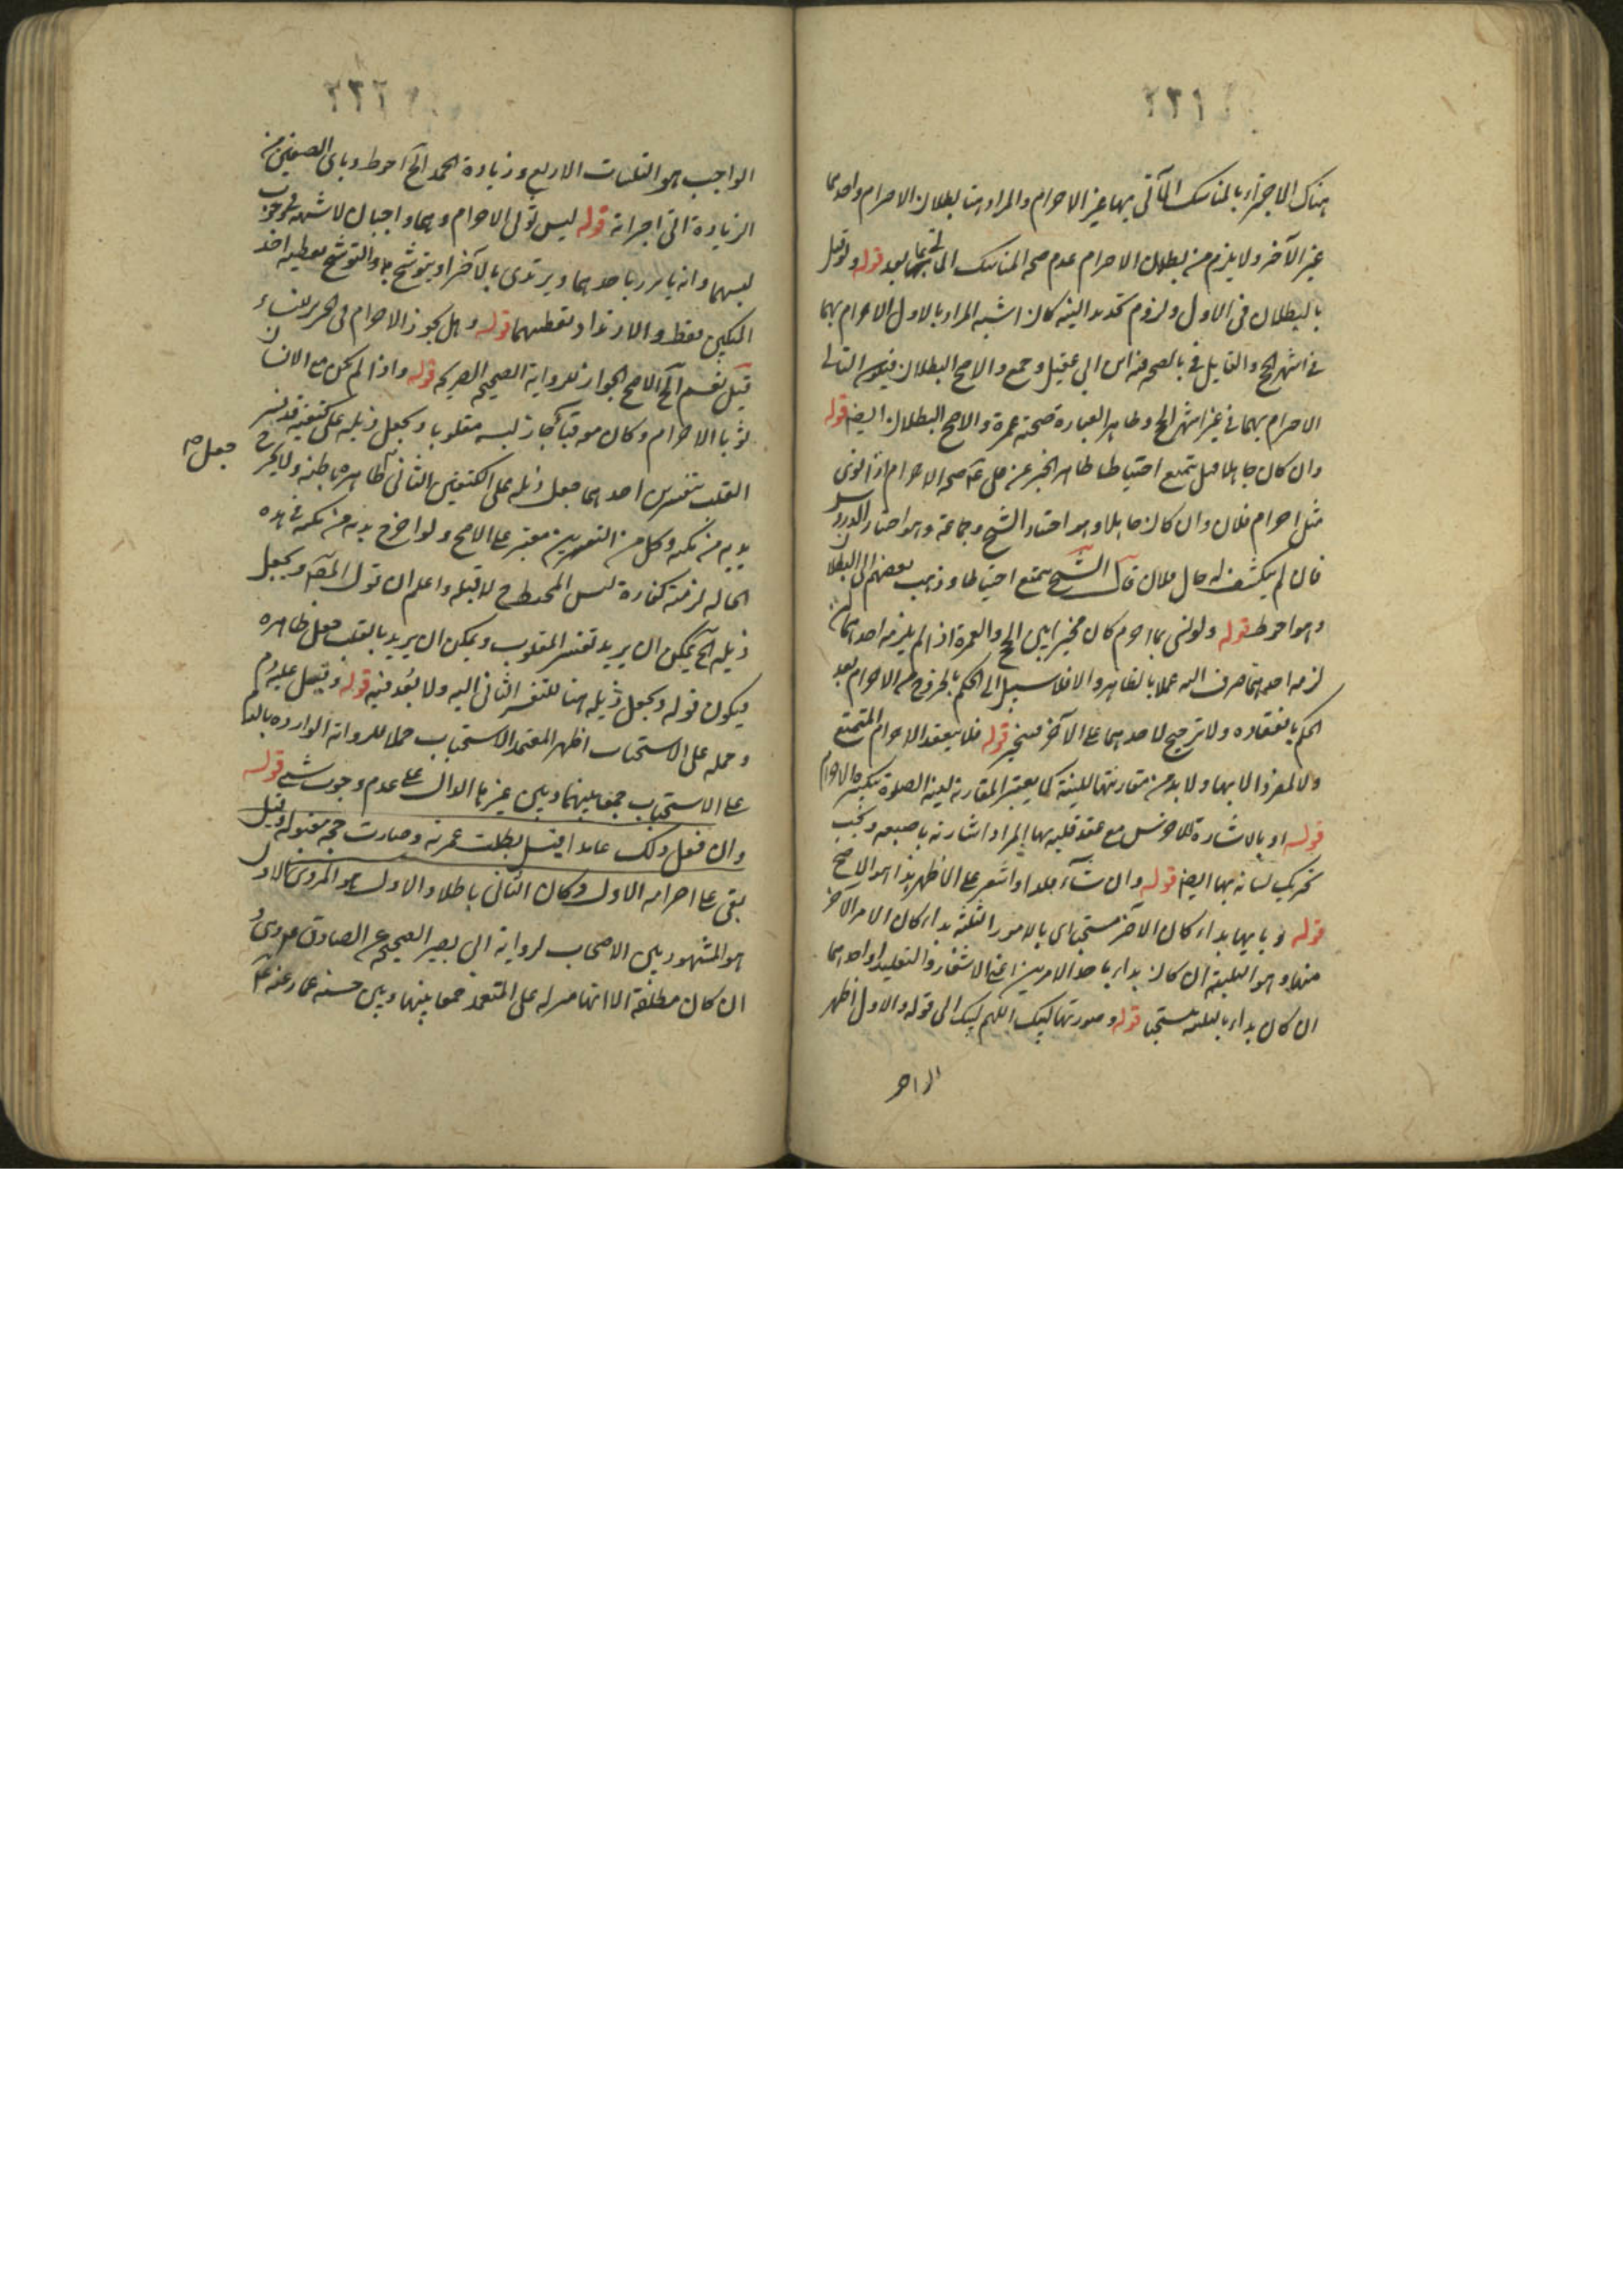 ٢٢١
هناك الاجتزاء بالمناسك المأتي بها بغير الاحرام والمراد هنا بطلان الاحرام واحدهما
غير الآخر ولا يلزم من بطلان الاحرام عدم صحة المناسك بعد قوله ولو قيل
بالبطلان في الاول ولزوم تجديد النية كان اشبه المراد بالاول الاحرام بهما
في اشهر الحج والقايل فيه بالصحة ابن ابي عقيل وجمع والاصح البطلان
الاحرام بهما في غير اشهر الحج وظاهر العبارة صحته عمرة والاصح البطلان ايضا قوله
وان كان جاهلا قيل يتمتع احتياطا ظاهر الخبر عن علي ع صحة الاحرام اذا نوى
مثل احرام فلان وان كان جاهلا وهو اختيار الشيخ وجماعة وهو اختيار الدروس
فان لم ينكشف له حال فلان قال الشيخ يتمتع احتياطا وذهب بعضهم الى البطلان
وهو احوط قوله ولو نسي بما احرم كان مخيرا بين الحج والعمرة اذا لم يلزمه احدهما
لزمه احدهما صرف اليه عملا بالظاهر والا فلا سبيل الى الحكم بالخروج من الاحرام بعد
الحكم بانعقاده ولا ترجيح لاحدهما على الآخر فيتخير قوله فلا ينعقد الاحرام المتمتع
ولا المفرد الا بها ولا بد من مقارنتها للنية كما يعتبر المقارنة لنية الصلوة بتكبيرة الاحرام
قوله او بالاشارة للاخرس مع عقد قلبه بها المراد اشارته باصبعه ويجب
تحريك لسانه بها ايضا قوله وان شاء قلد او اشعر على الاظهر هذا هو الاصح
قوله وبايها بداء كان الآخر مستحبا اي بالامور الثلثة بداء كان الامر الآخر
منها وهو التلبية ان كان بداء باحد الامرين اعني الاشعار والتقليد او احدهما
ان كان بداء بالتلبية مستحبا قوله وصورتها لبيك اللهم لبيك الى قوله والاول اظهر
الواجب
٢٢٢
الواجب هو التلبيات الاربع وزيادة الحمد الخ احوط وباي الصيغتين من
الزيادة اتى اجزأته قوله ليس ثوبي الاحرام وهما واجبان لا شبهة في وجوب
لبسهما وانه يأتزر باحدهما ويرتدي بالآخر او يتوشح به والتوشح تغطية احد
المنكبين فقط والارتداء تغطيتهما قوله وهل يجوز الاحرام في الحرير للنساء
قيل نعم الخ الاصح الجواز للرواية الصحيحة الصريحة قوله واذا لم يكن مع الانسان
ثوبا الاحرام وكان معه قباء جاز لبسه مقلوبا ويجعل ذيله على كتفيه قد فسر
القلب بتفسيرين احدهما جعل ذيله على الكتفين الثاني جعل ظاهره باطنه ولا يخرج
يديه من كميه وكل من التفسيرين معتبر على الاصح ولو اخرج يديه من كميه في هذه
الحالة لزمته كفارة لبس المخيط لا قبله واعلم ان قول المصنف ويجعل
ذيله الخ يمكن ان يريد تفسير المقلوب ويمكن ان يريد بالقلب جعل ظاهره
فيكون قوله ويجعل ذيله هنا للتفسير الثاني اليه ولا بعد فيه قوله وقيل عليه دم
وحمله على الاستحباب اظهر المعتمد الاستحباب حملا للرواية الواردة بالدم
على الاستحباب جمعا بينها وبين غيرها الدال على عدم وجوب شيء قوله
وان فعل ذلك عامدا قيل بطلت عمرته وصارت حجة مقبولة وقيل
بقي على احرامه الاول وكان الثاني باطلا والاول هو المروي الاول
هو المشهور بين الاصحاب لرواية ابي بصير الصحيحة عن الصادق ع وهي
ان كان مطلقة الا انها منزلة على المتعمد جمعا بينها وبين حسنة عمار عنه ع
جعل صح